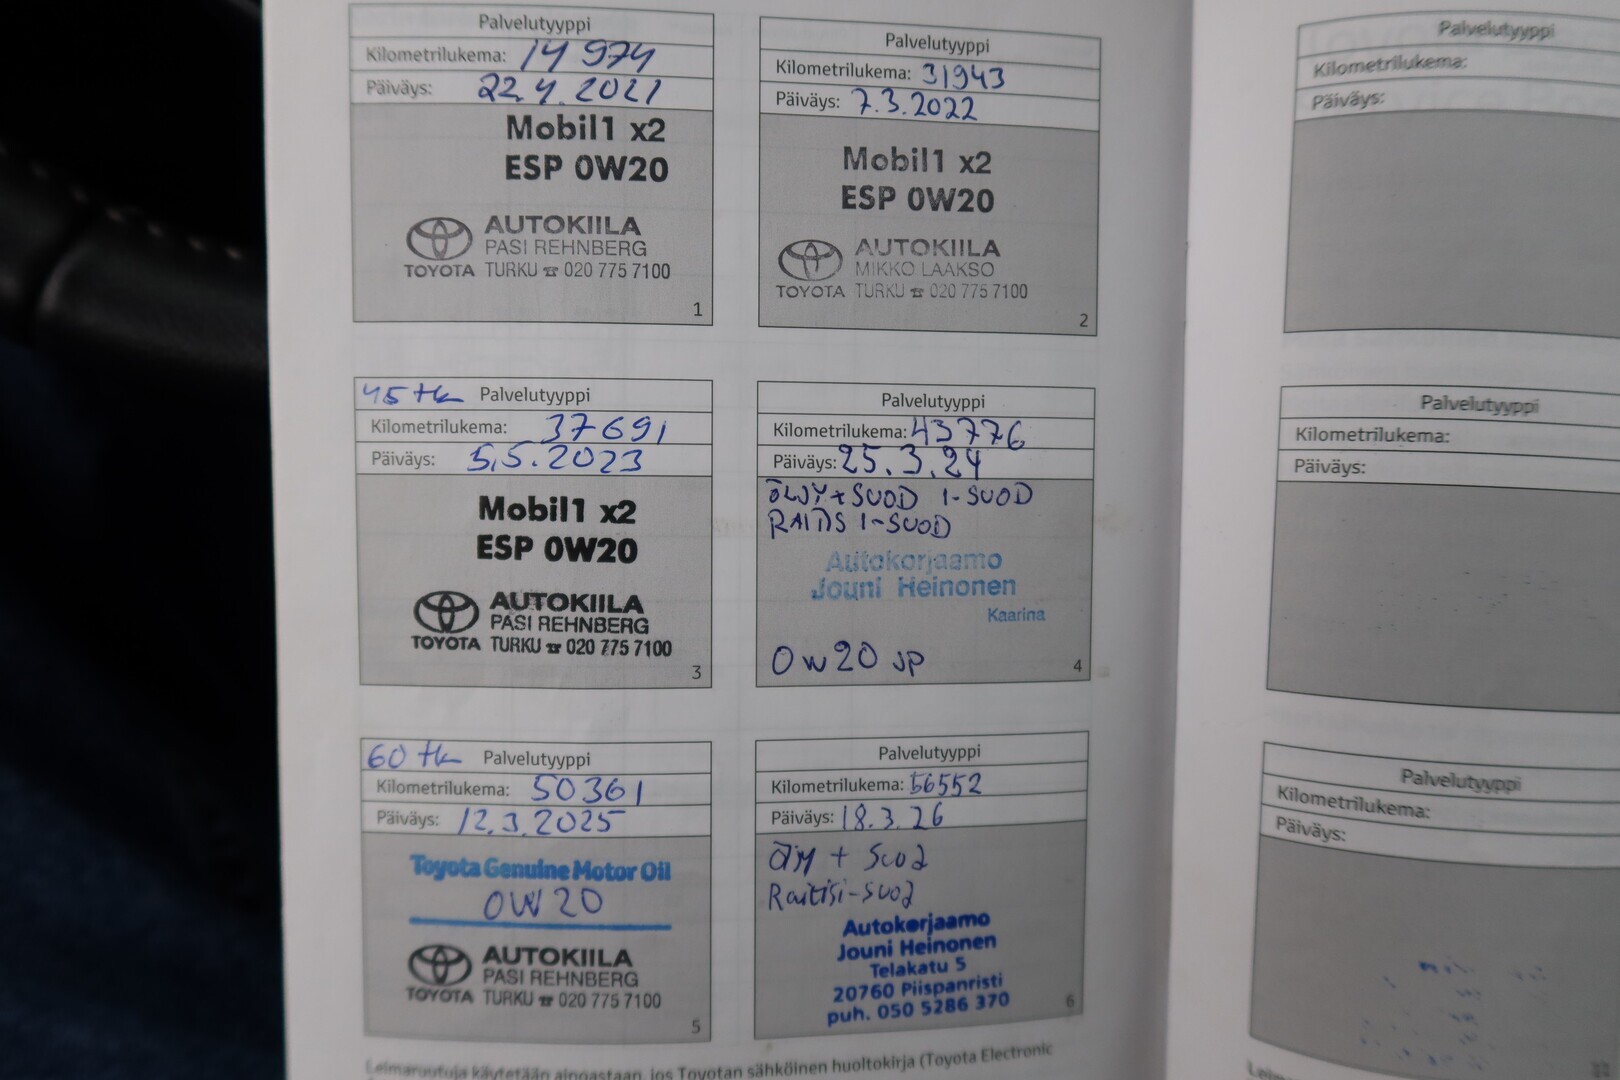 Palvelutyyppi
Kilometrilukema: 14 974
Päiväys: 22.4.2021
Mobil1 x2
ESP 0W20
AUTOKIILA
PASI REHNBERG
TOYOTA TURKU ☎ 020 775 7100
1
Palvelutyyppi
Kilometrilukema: 31943
Päiväys: 7.3.2022
Mobil1 x2
ESP 0W20
AUTOKIILA
MIKKO LAAKSO
TOYOTA TURKU ☎ 020 775 7100
2
45 tk Palvelutyyppi
Kilometrilukema: 37691
Päiväys: 5.5.2023
Mobil1 x2
ESP 0W20
AUTOKIILA
PASI REHNBERG
TOYOTA TURKU ☎ 020 775 7100
3
Palvelutyyppi
Kilometrilukema: 43776
Päiväys: 25.3.24
ÖLJY+SUOD I-SUOD
RAITIS I-SUOD
Autokorjaamo
Jouni Heinonen
Kaarina
0W20 JP
4
60 tk Palvelutyyppi
Kilometrilukema: 50361
Päiväys: 12.3.2025
Toyota Genuine Motor Oil
0W20
AUTOKIILA
PASI REHNBERG
TOYOTA TURKU ☎ 020 775 7100
5
Palvelutyyppi
Kilometrilukema: 56552
Päiväys: 18.3.26
+ Suod
Raitisi-suod
Autokorjaamo
Jouni Heinonen
Telakatu 5
20760 Piispanristi
puh. 050 5286 370
6
Leimaruutuja käytetään ainoastaan, jos Toyotan sähköinen huoltokirja (Toyota Electronic
Palvelutyyppi
Kilometrilukema:
Päiväys:
Palvelutyyppi
Kilometrilukema:
Päiväys:
Palvelutyyppi
Kilometrilukema:
Päiväys: